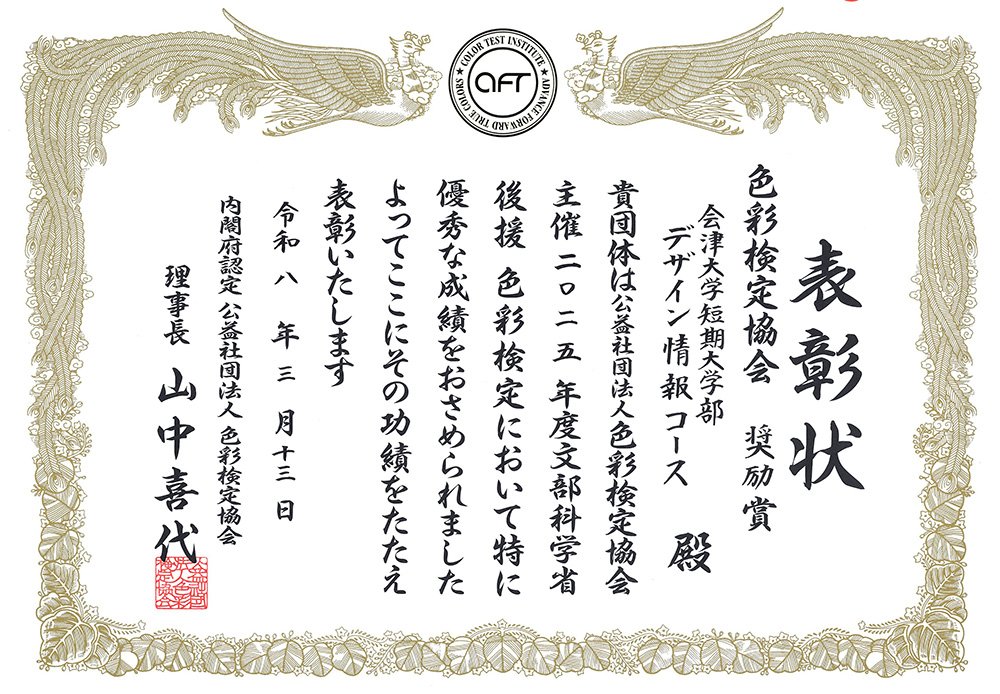 COLOR TEST INSTITUTE ★ ADVANCE FORWARD TRUE COLORS ★
aft
表彰状
色彩検定協会 奨励賞
会津大学短期大学部
デザイン情報コース 殿
貴団体は公益社団法人色彩検定協会
主催 二〇二五 年度文部科学省
後援 色彩検定において特に
優秀な成績をおさめられました
よってここにその功績をたたえ
表彰いたします
令和 八 年 三 月 十三 日
内閣府認定 公益社団法人 色彩検定協会
理事長 山中喜代